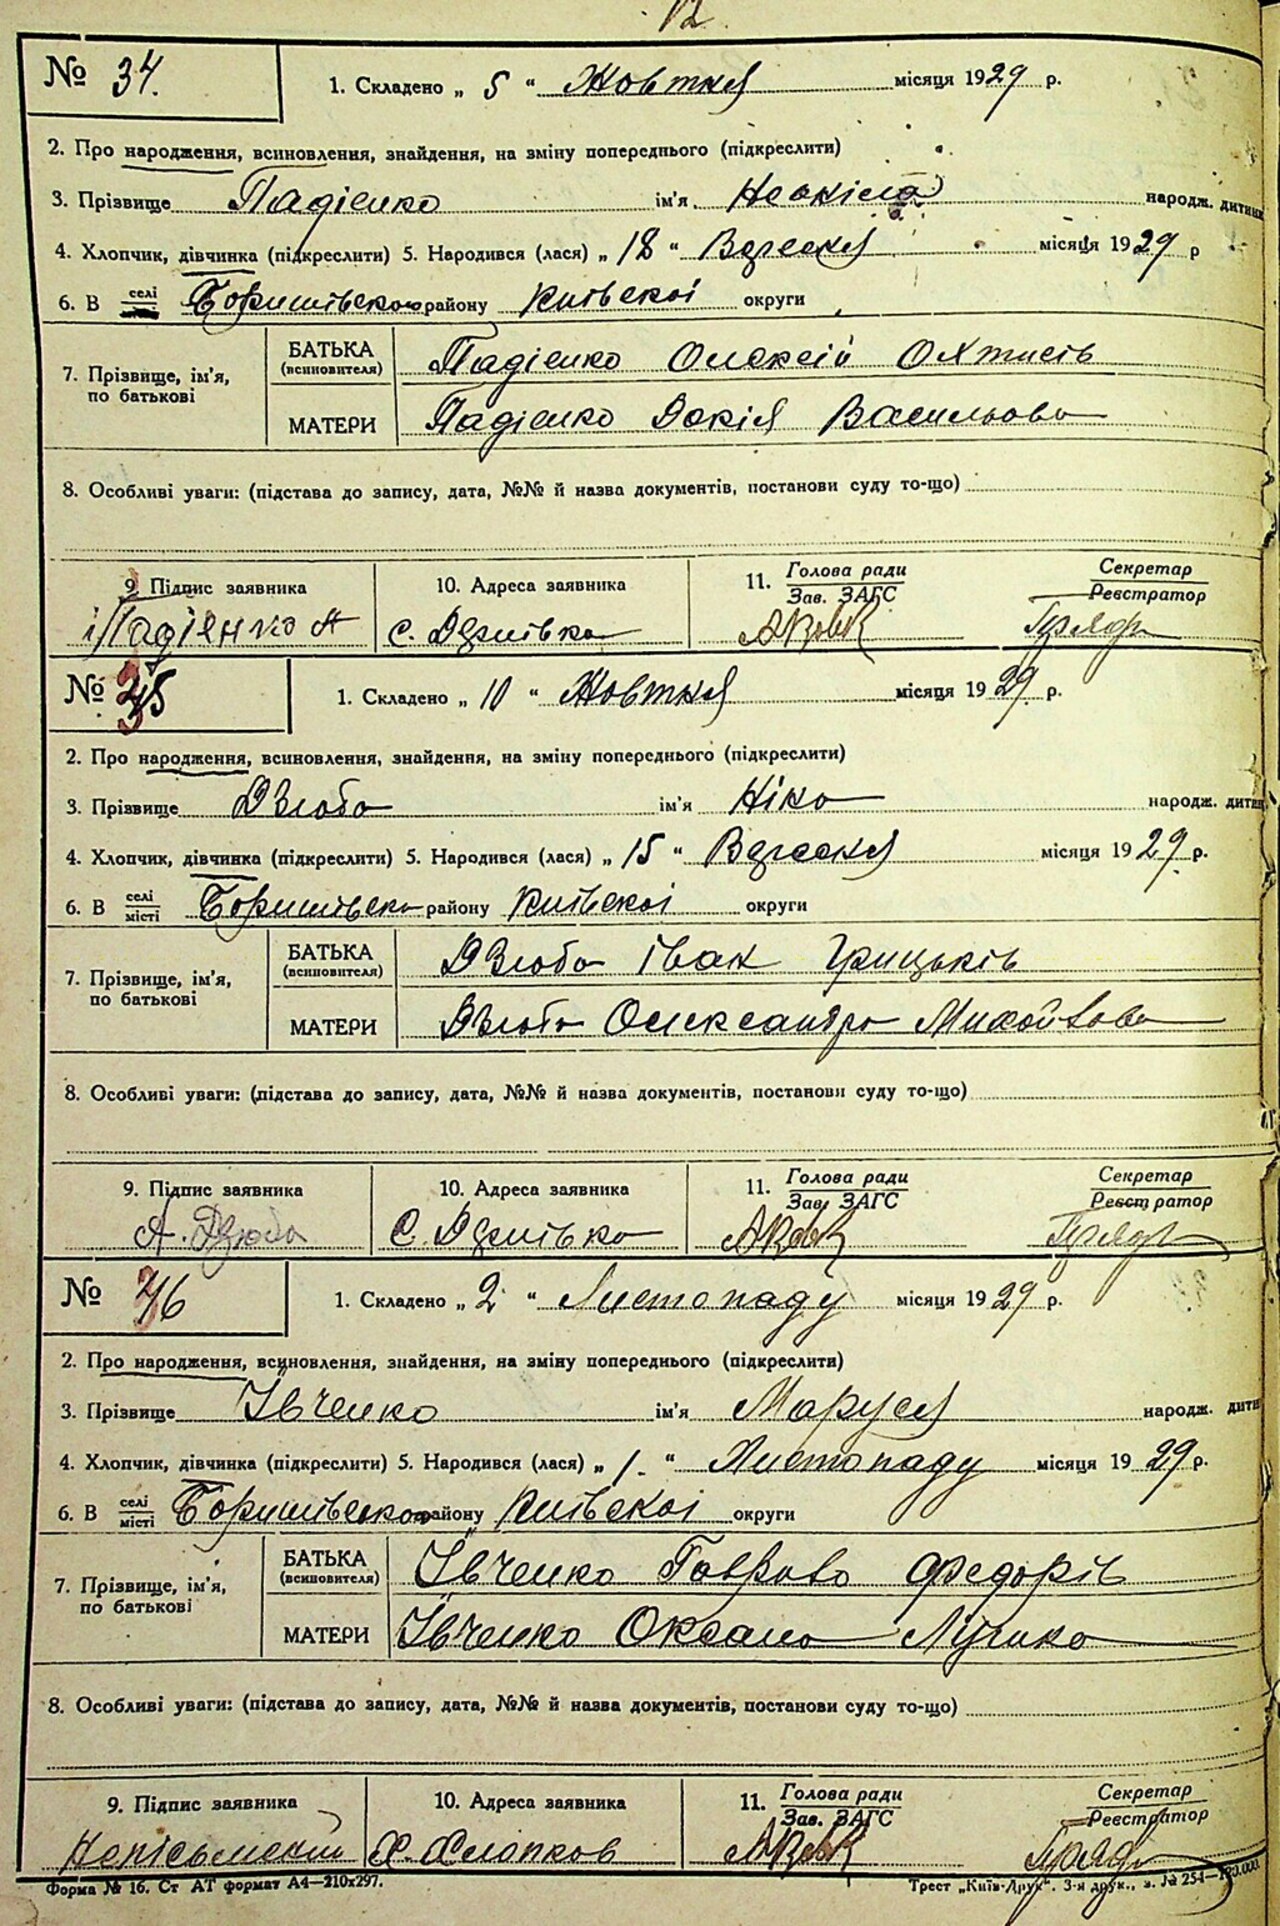 12
№ 34. 1. Складено „ 5 “ Жовтня місяця 1929 р.
2. Про народження, всиновлення, знайдення, на зміну попереднього (підкреслити)
3. Прізвище Падієнко ім'я народж. дитини
4. Хлопчик, дівчинка (підкреслити) 5. Народився (лася) „ 18 “ Вересня місяця 1929 р
6. В селі району Київської округи
7. Прізвище, ім'я, по батькові БАТЬКА (всиновителя) Падієнко Олексій
МАТЕРИ Падієнко Докія Васильова
8. Особливі уваги: (підстава до запису, дата, №№ й назва документів, постанови суду то-що)
9. Підпис заявника 10. Адреса заявника 11. Голова ради Зав. ЗАГС Секретар Реєстратор
Падієнко А с.
№ 35 1. Складено „ 10 “ Жовтня місяця 1929 р.
2. Про народження, всиновлення, знайдення, на зміну попереднього (підкреслити)
3. Прізвище Дзюба ім'я Ніна народж. дитин
4. Хлопчик, дівчинка (підкреслити) 5. Народився (лася) „ 15 “ Вересня місяця 1929 р.
6. В селі місті району Київської округи
7. Прізвище, ім'я, по батькові БАТЬКА (всиновителя) Дзюба Іван Грицьків
МАТЕРИ Дзюба Олександра
8. Особливі уваги: (підстава до запису, дата, №№ й назва документів, постанови суду то-що)
9. Підпис заявника 10. Адреса заявника 11. Голова ради Зав. ЗАГС Секретар Реєстратор
А. Дзюба С.
№ 36 1. Складено „ 2 “ Листопаду місяця 1929 р.
2. Про народження, всиновлення, знайдення, на зміну попереднього (підкреслити)
3. Прізвище Івченко ім'я Маруся народж. дити
4. Хлопчик, дівчинка (підкреслити) 5. Народився (лася) „ 1. “ Листопаду місяця 1929 р.
6. В селі місті району Київської округи
7. Прізвище, ім'я, по батькові БАТЬКА (всиновителя) Івченко Федорів
МАТЕРИ Івченко Оксана
8. Особливі уваги: (підстава до запису, дата, №№ й назва документів, постанови суду то-що)
9. Підпис заявника 10. Адреса заявника 11. Голова ради Зав. ЗАГС Секретар Реєстратор
Х. Хлопков
Форма № 16. Ст АТ формат А4—210х297. Трест „Київ-Друк“. 3-я друк., з. № 254—